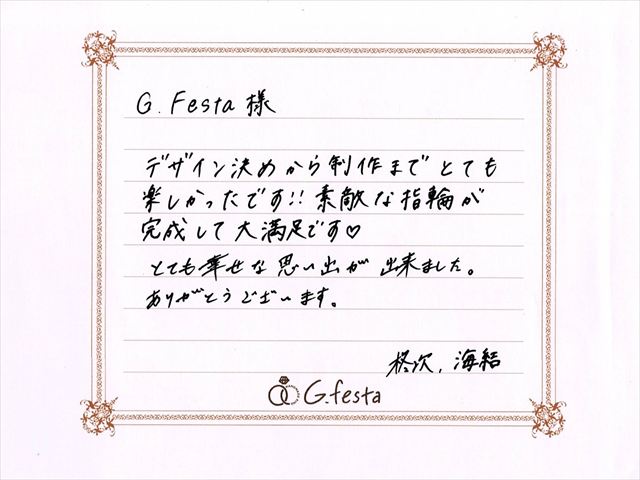 G.Festa様
デザイン決めから制作までとても
楽しかったです!!素敵な指輪が
完成して大満足です♡
とても幸せな思い出が出来ました。
ありがとうございます。
柊次、海結
G.festa